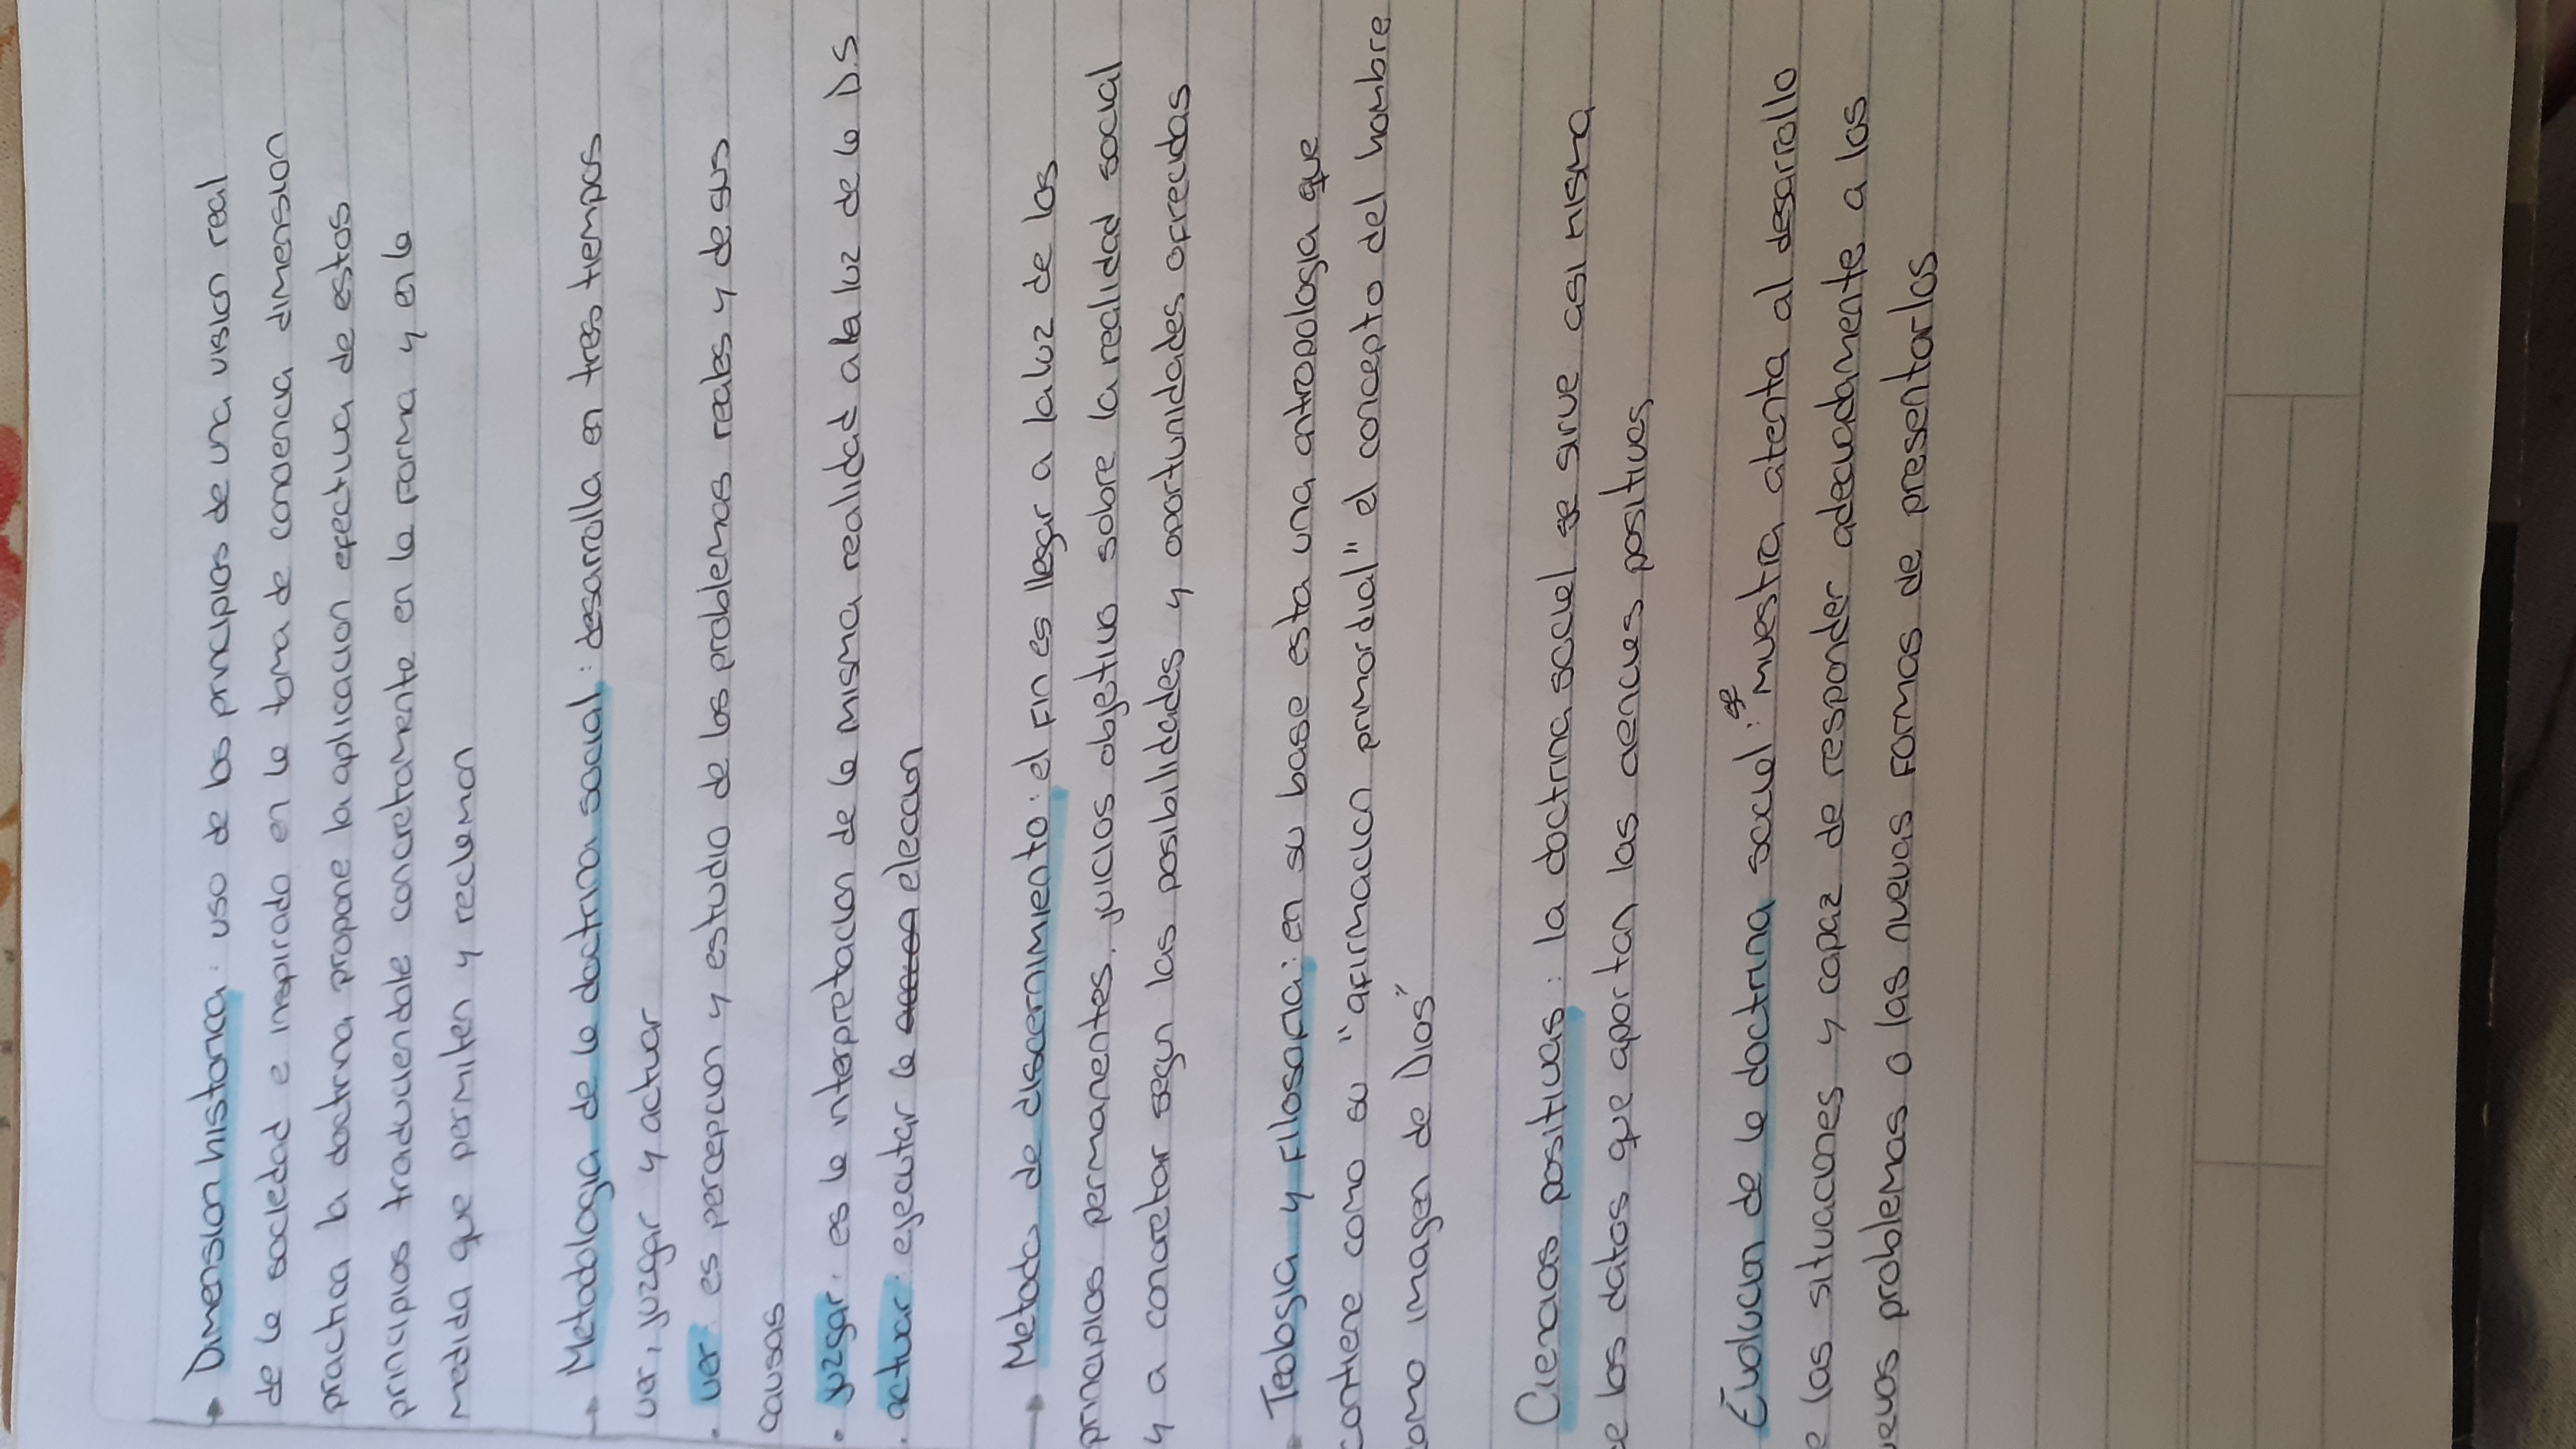 Dimension historica: uso de los principios de una vision real
de la sociedad e inspirado en la toma de conciencia dimension
practica la doctrina propone la aplicacion efectiva de estos
principios traduciendole concretamente en la forma y en la
medida que permiten y reclaman
Metodologia de la doctrina social: desarrolla en tres tiempos
ver, juzgar y actuar
· ver: es percepcion y estudio de los problemas reales y de sus
causas
· juzgar: es la interpretacion de la misma realidad a la luz de la D.S
· actuar: ejecutar la eleccion
Metodo de discernimiento: el fin es llegar a la luz de los
principios permanentes, juicios objetivo sobre la realidad social
y a concretar segun las posibilidades y oportunidades ofrecidas
Teologia y filosofia: en su base esta una antropologia que
contiene como su "afirmacion primordial" el concepto del hombre
omo imagen de Dios"
Ciencias positivas: la doctrina social se sirve asi misma
e los datos que aportan las ciencias positivas
Evolucion de la doctrina social: se muestra atenta al desarrollo
e las situaciones y capaz de responder adecuadamente a los
uevos problemas o las nuevas formas de presentarlos